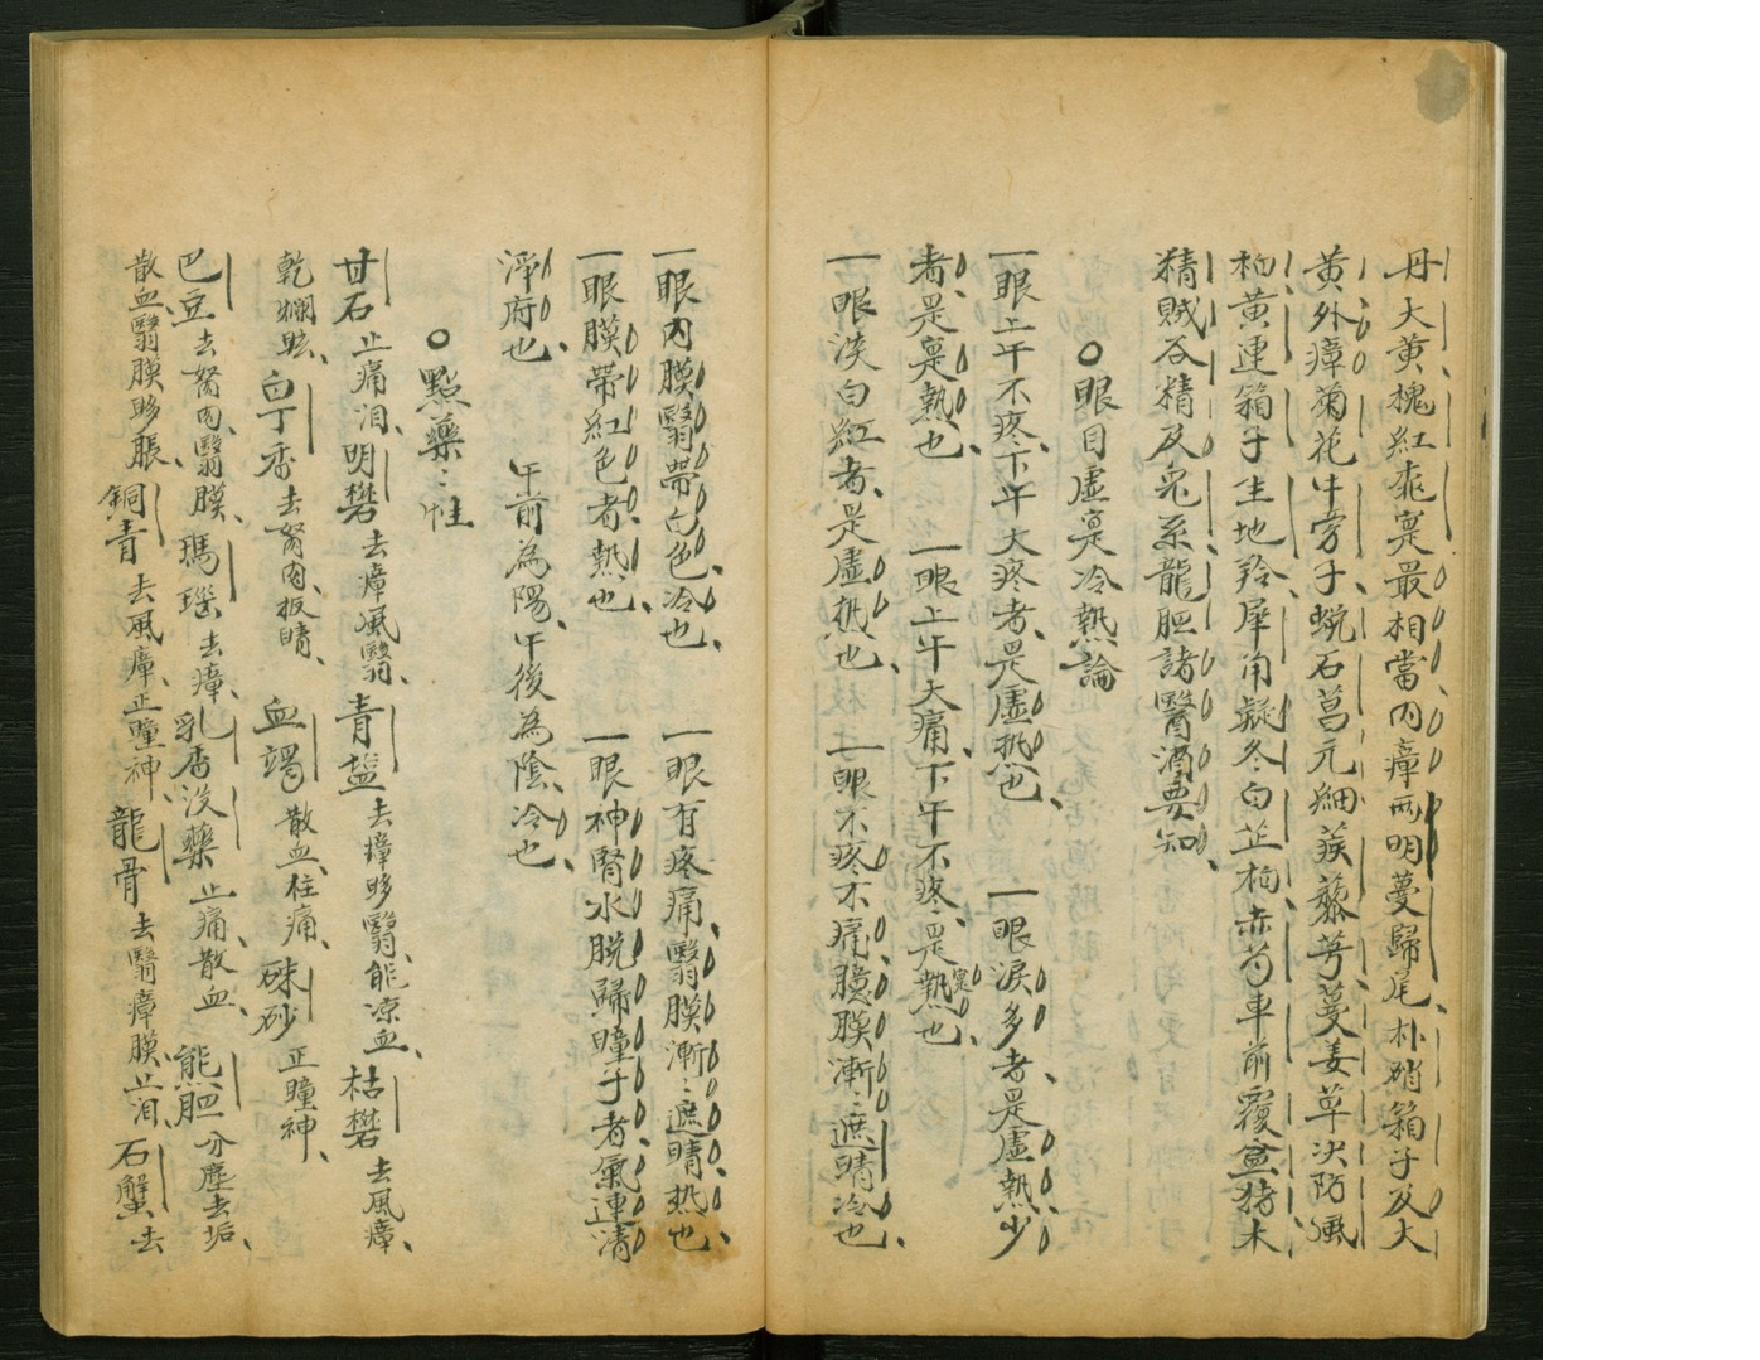 丹大黄槐紅乖寔最相當内瘴兩明蔓歸尾朴硝箱子及大
黄外瘴菊花牛旁子蜕石菖元細蒺藜芎蔓姜草决防風
柏黄連箱子生地羚犀角凝冬白芷栢赤芍車前覆盆猪木
精賊谷精及兔系龍胆諸醫酒要知
○眼目虛寔冷熱論
一眼上午不疼下午大疼者是虛热也 一眼淚多者是虛熱少
者是寔熱也 一眼上午大痛下午不疼是寔熱也
一眼淡白紅者是虛热也 一眼不疼不痛膜漸〻遮睛冷也
一眼内膜翳帶白色冷也 一眼有疼痛翳膜漸〻遮睛热也
一眼膜帶紅色者熱也 一眼神腎水脱歸瞳子者氣連清
淨府也 午前為陽午後為陰冷也
○點藥〻性
甘石止痛泪明礬去瘴風翳青盐去瘴眵翳能凉血枯礬去風瘴
乾爛眩白丁香去胬肉扳睛 血竭散血柱痛硃砂正瞳神
巴豆去胬肉翳膜瑪瑙去瘴乳香没藥止痛散血熊胆分塵去垢
散血翳膜眵脹銅青去風瘴正瞳神龍骨去翳瘴膜止泪石蟹去